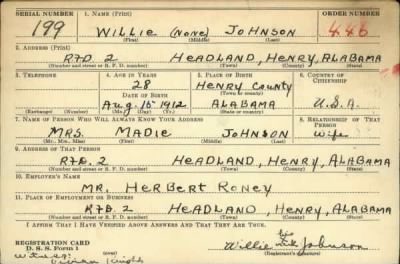 SERIAL NUMBER 1. NAME (Print) ORDER NUMBER
199 WILLIE (NONE) JOHNSON 446
(First) (Middle) (Last)
2. ADDRESS (Print)
RFD. 2 HEADLAND, HENRY, ALABAMA
(Number and street or R. F. D. number) (Town) (County) (State)
3. TELEPHONE 4. AGE IN YEARS 5. PLACE OF BIRTH 6. COUNTRY OF CITIZENSHIP
28 HENRY COUNTY
DATE OF BIRTH (Town or county)
Aug. 15 1912 ALABAMA U.S.A.
(Exchange) (Number) (Mo.) (Day) (Yr.) (State or country)
7. NAME OF PERSON WHO WILL ALWAYS KNOW YOUR ADDRESS 8. RELATIONSHIP OF THAT PERSON
MRS. MADIE JOHNSON Wife
(Mr., Mrs., Miss) (First) (Middle) (Last)
9. ADDRESS OF THAT PERSON
RFD. 2 HEADLAND, HENRY, ALABAMA
(Number and street or R. F. D. number) (Town) (County) (State)
10. EMPLOYER'S NAME
MR. HERBERT RONEY
11. PLACE OF EMPLOYMENT OR BUSINESS
RFD 2 HEADLAND, HENRY, ALABAMA
(Number and street or R. F. D. number) (Town) (County) (State)
I AFFIRM THAT I HAVE VERIFIED ABOVE ANSWERS AND THAT THEY ARE TRUE.
REGISTRATION CARD
D. S. S. Form 1
Willie Johnson
(Registrant's signature)
Knight